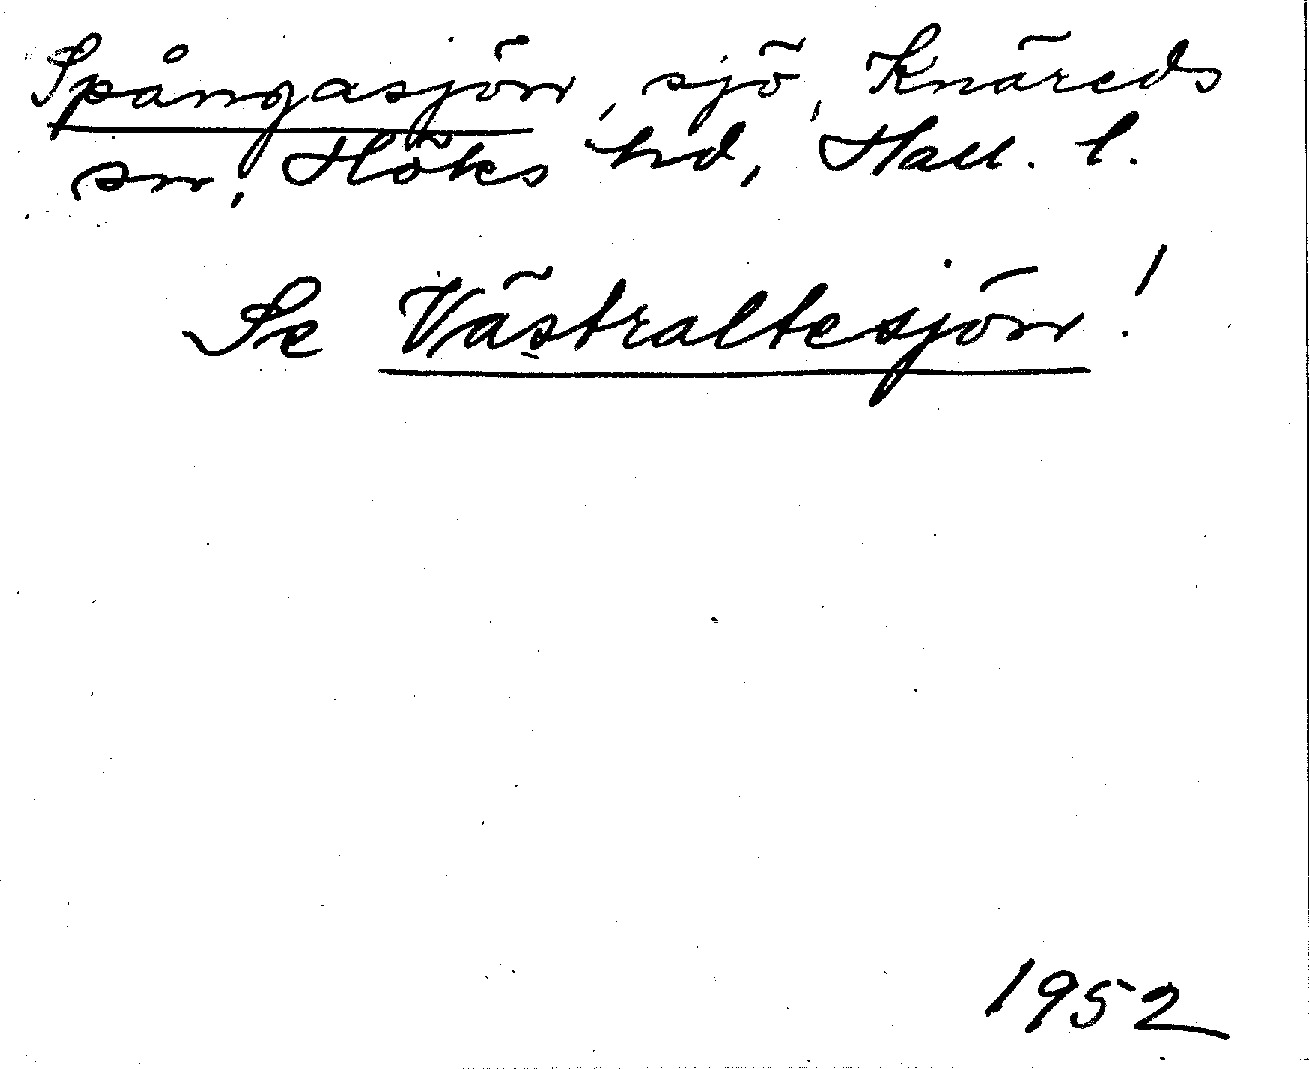 Spångasjön, sjö, Knäreds
sn, Höks hd, Hall. l.
Se Västraltesjön!
1952